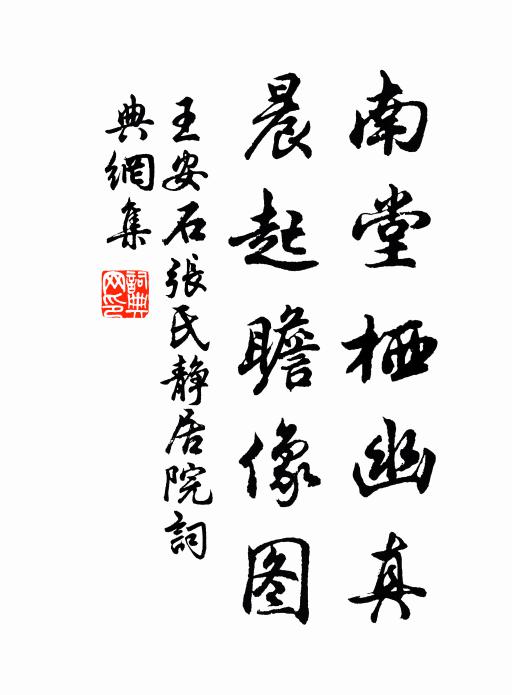 南堂栖幽真
晨起瞻像图
王安石張氏静居院詞
典網集
詞典网印